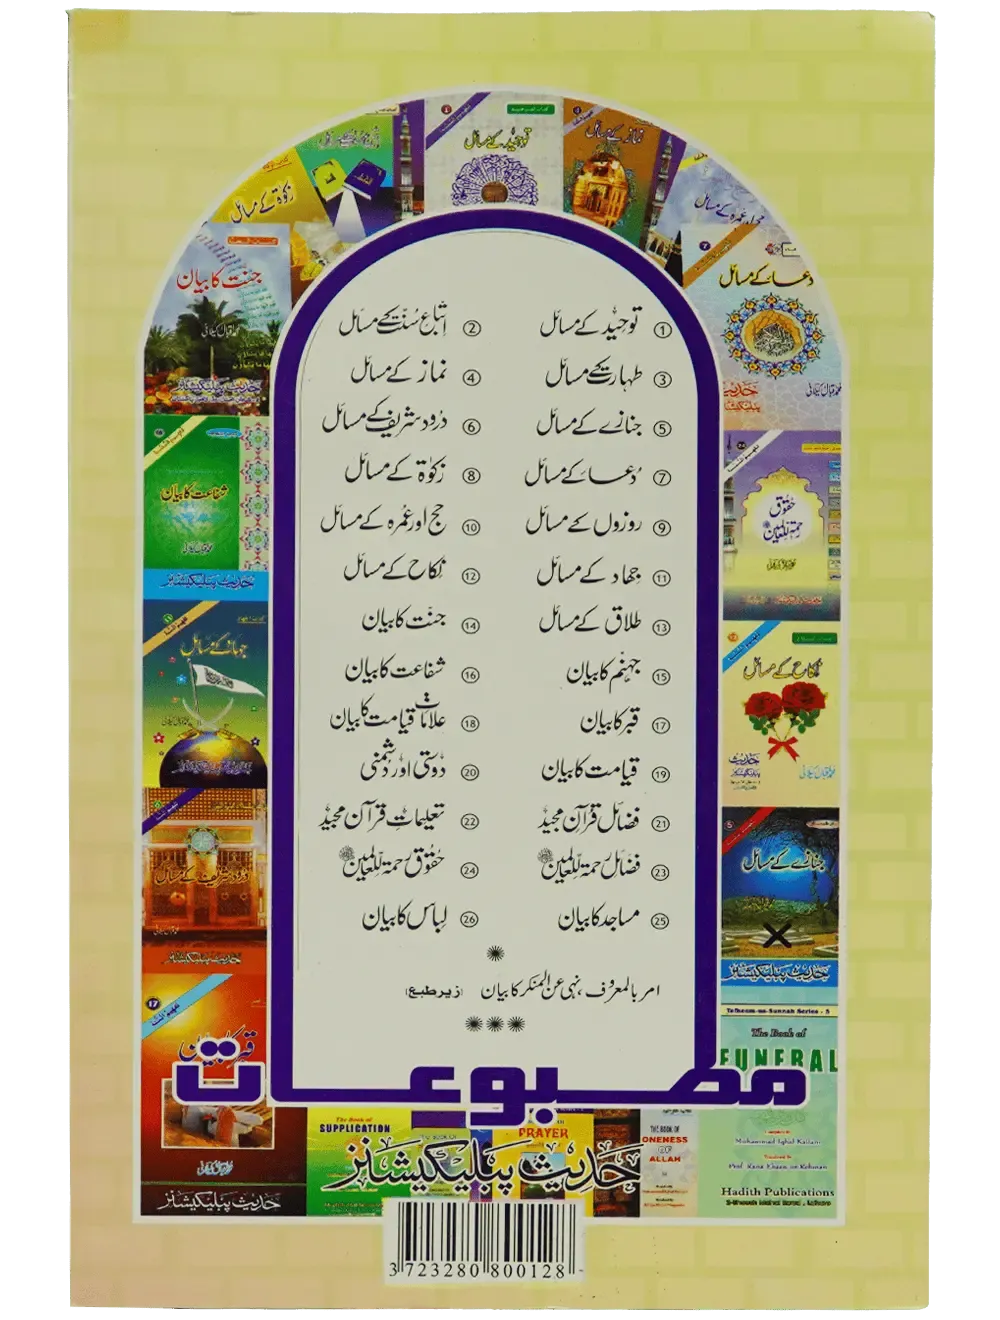 ① توحید کے مسائل ② اتباع سنت کے مسائل
③ طہارت کے مسائل ④ نماز کے مسائل
⑤ جنازے کے مسائل ⑥ درود شریف کے مسائل
⑦ دُعا کے مسائل ⑧ زکوٰۃ کے مسائل
⑨ روزوں کے مسائل ⑩ حج اور عمرہ کے مسائل
⑪ جہاد کے مسائل ⑫ نکاح کے مسائل
⑬ طلاق کے مسائل ⑭ جنت کا بیان
⑮ جہنم کا بیان ⑯ شفاعت کا بیان
⑰ قبر کا بیان ⑱ علامات قیامت کا بیان
⑲ قیامت کا بیان ⑳ دوستی اور دشمنی
㉑ فضائل قرآن مجید ㉒ تعلیمات قرآن مجید
㉓ فضائل رحمۃ للعالمین ﷺ ㉔ حقوق رحمۃ للعالمین ﷺ
㉕ مساجد کا بیان ㉖ لباس کا بیان
امر بالمعروف، نہی عن المنکر کا بیان (زیر طبع)
مطبوعات
حدیث پبلیکیشنز
توحید کے مسائل
نماز کے مسائل
زکوٰۃ کے مسائل
حج اور عمرہ کے مسائل
جنت کا بیان
محمد اقبال کیلانی
حدیث پبلیکیشنز
دعا کے مسائل
محمد اقبال کیلانی
حدیث پبلیکیشنز
شفاعت کا بیان
حدیث پبلیکیشنز
حقوق رحمۃ للعالمین
جہاد کے مسائل
نکاح کے مسائل
محمد اقبال کیلانی
حدیث پبلیکیشنز
درود شریف کے مسائل
حدیث پبلیکیشنز
جنازے کے مسائل
حدیث پبلیکیشنز
17
قبر کا بیان
حدیث پبلیکیشنز
Tafheem-us-Sunnah Series - 5
The Book of
FUNERAL
Muhammad Iqbal Kailani
Hadith Publications
The Book of
SUPPLICATION
PRAYER
THE BOOK OF
ONENESS
OF
ALLAH
3723280800128